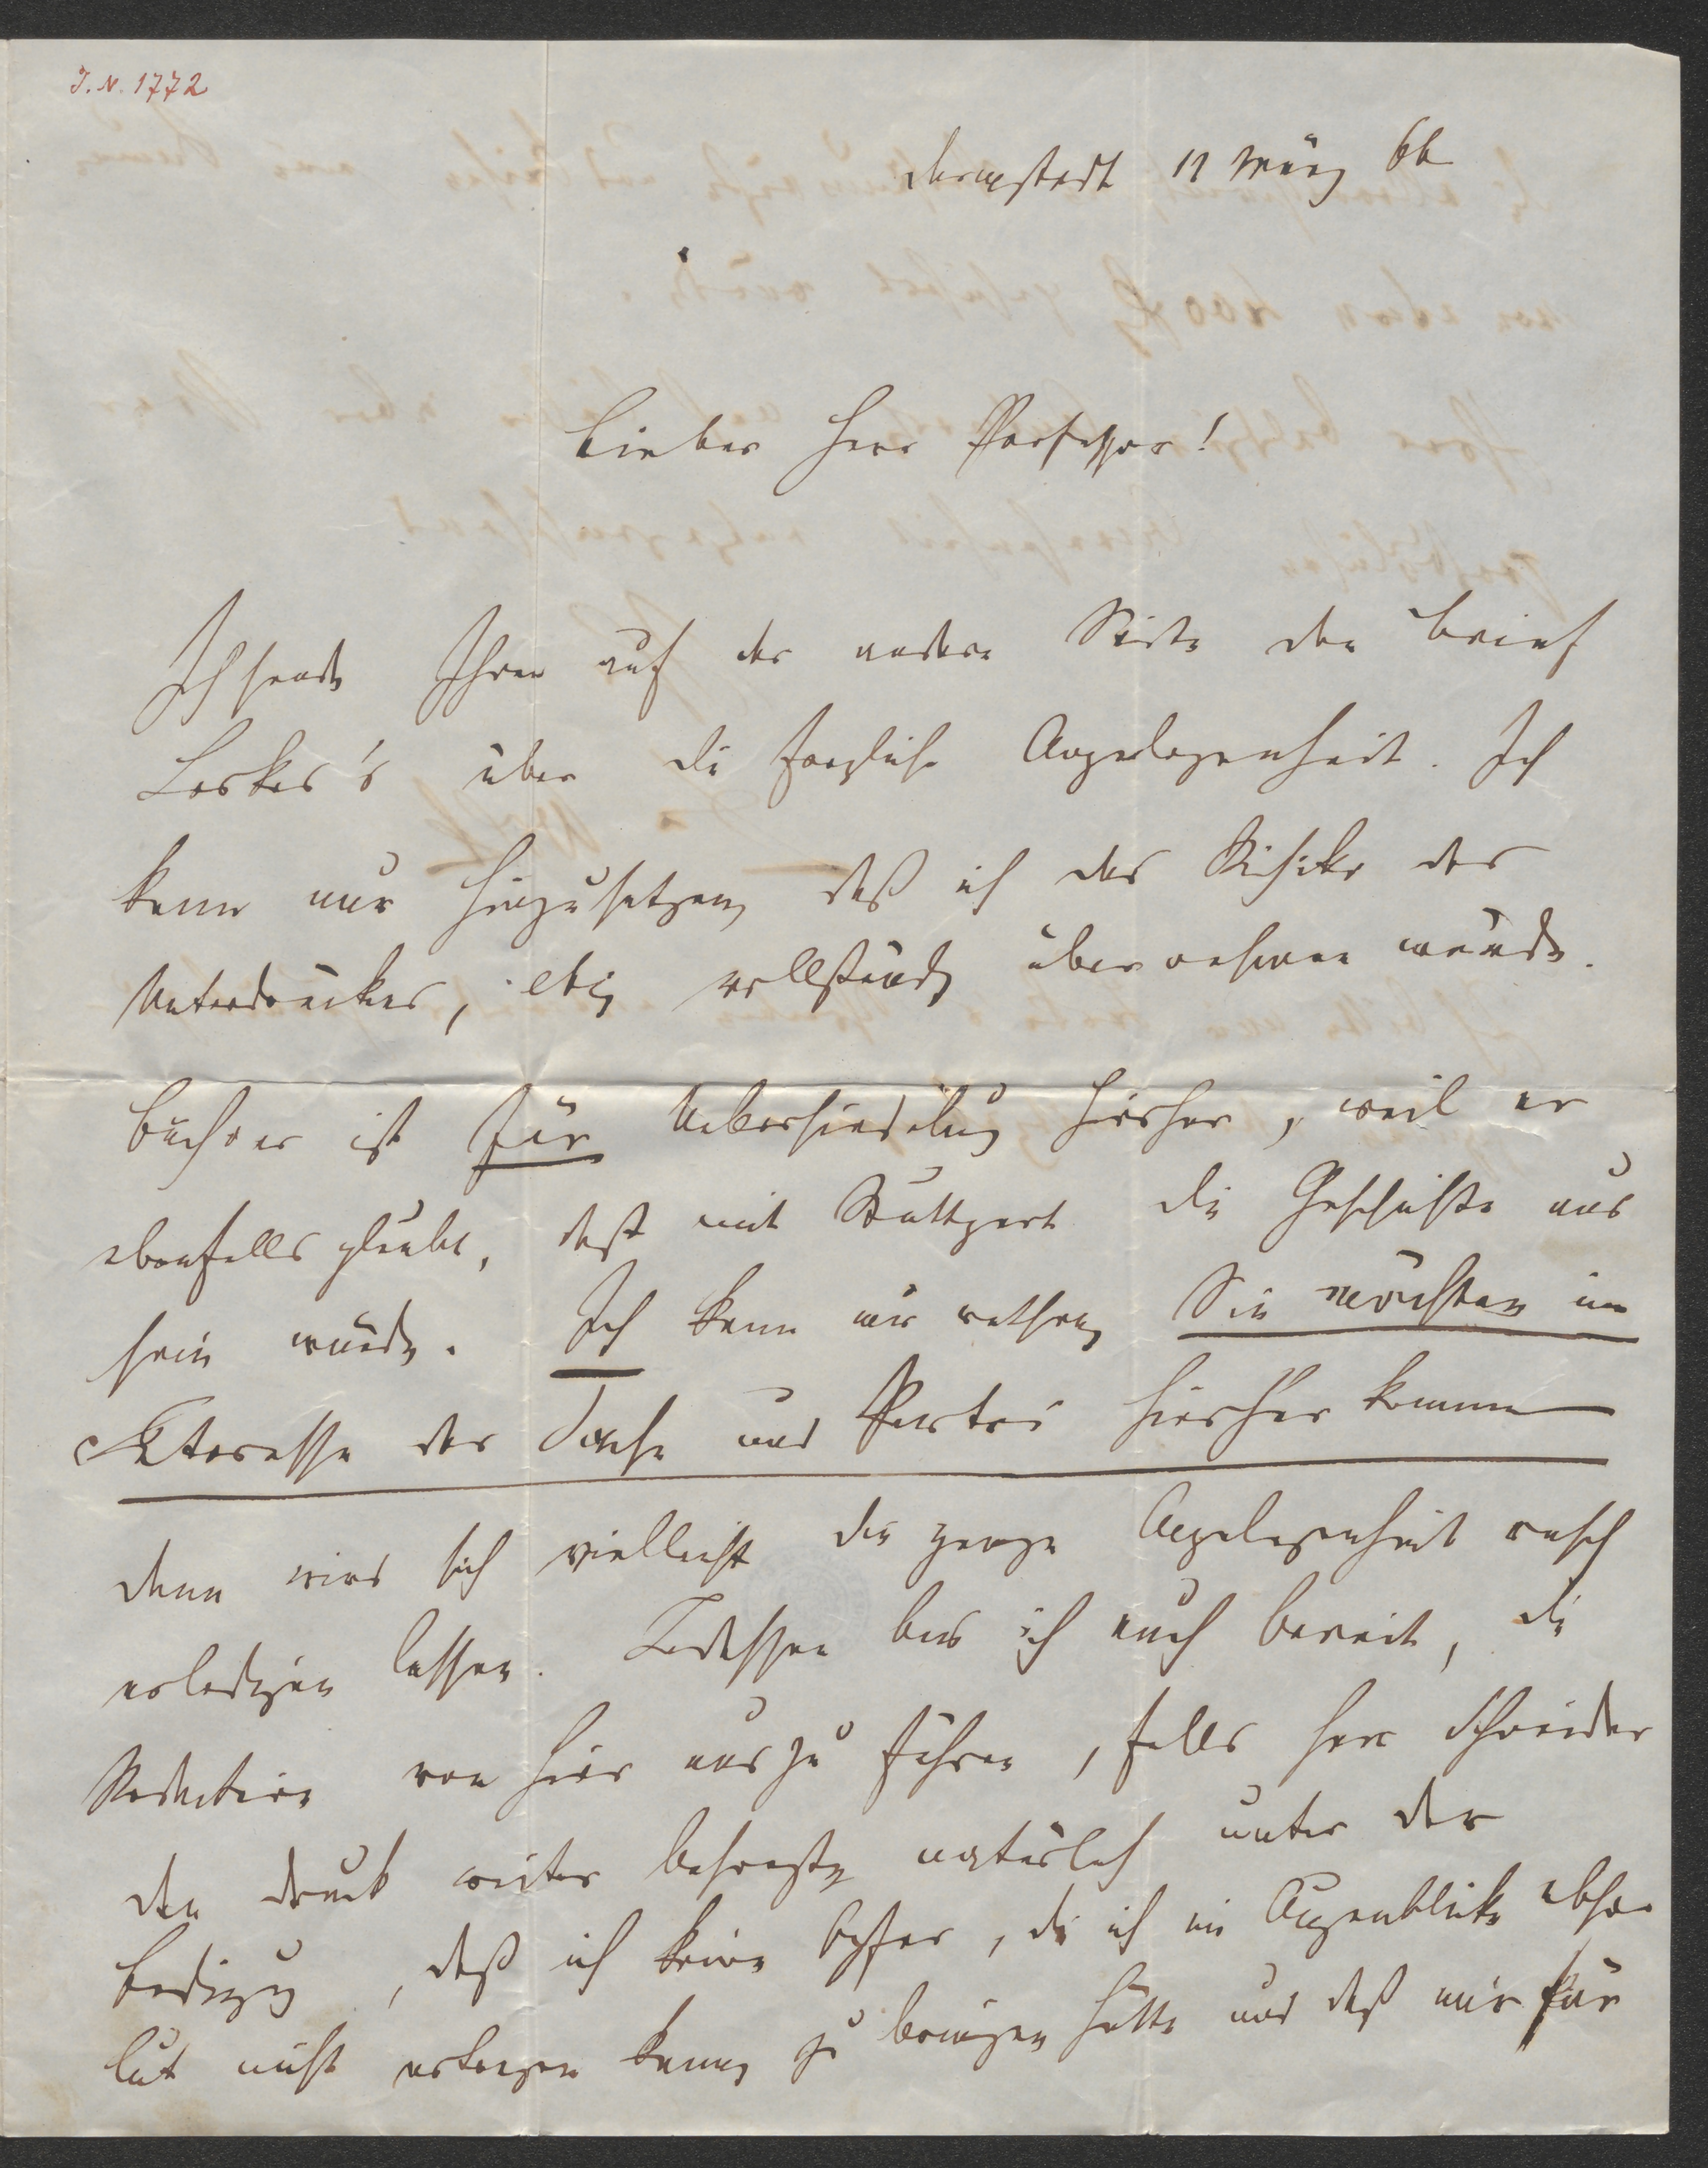 J. N. 1772
Darmstadt 11 März 66
Lieber Herr Professor!
Ich sende Ihnen auf der andern Seite den Brief
Leske's über die fragliche Angelegenheit. Ich
kann nur hinzusetzen, daß ich das Risiko des
Unterdruckes, vollständig übernehmen würde.
Büchner ist für Uebersiedelung hierher, weil er
ebenfalls glaubt, daß mit Stuttgart die Geschichte aus
sein würde. Ich kann nur rathen, Sie möchten im
Interesse der Sache und Partei hierher kommen
dann wird sich vielleicht die ganze Angelegenheit rasch
erledigen lassen. Indessen bin ich auch bereit, die
Redaktion von hier aus zu führen, falls Herr Schneider
den Druck weiter besorgte, natürlich unter der
Bedingung, daß ich keine Opfer, die ich im Augenblicke abso-
lut nicht ertragen kann, zu bringen hätte und daß mir für